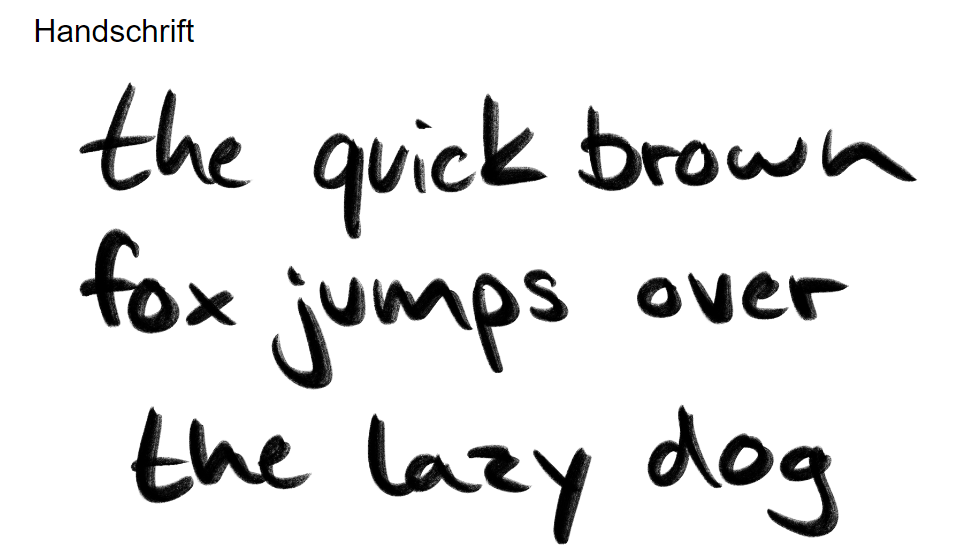 Handschrift
the quick brown
fox jumps over
the lazy dog